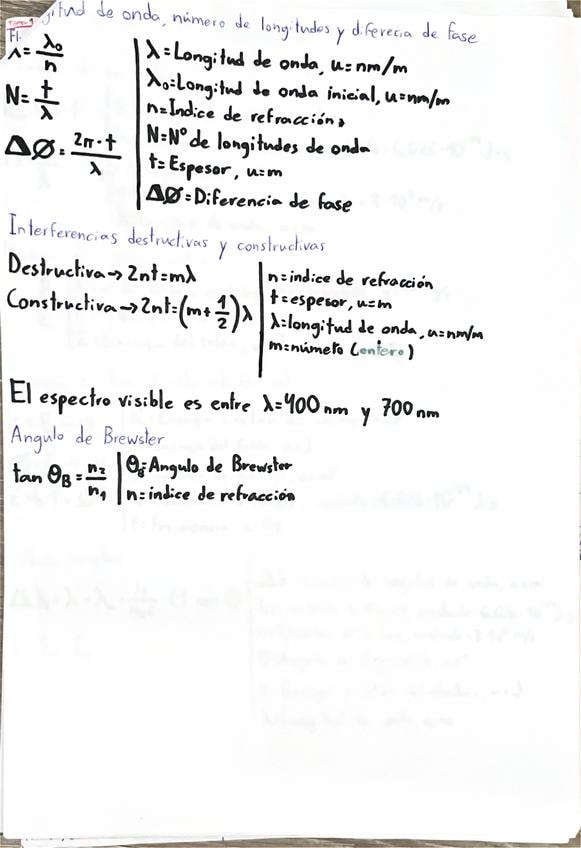 gitud de onda, número de longitudes y diferecia de fase
λ=λ₀/n
N=t/λ
ΔØ=2π·t/λ
λ=Longitud de onda, u=nm/m
λ₀=Longitud de onda inicial, u=nm/m
n=Indice de refracción,
N=Nº de longitudes de onda
t=Espesor, u=m
ΔØ=Diferencia de fase
Interferencias destructivas y constructivas
Destructiva→2nt=mλ
Constructiva→2nt=(m+1/2)λ
n=indice de refracción
t=espesor, u=m
λ=longitud de onda, u=nm/m
m=número (entero)
El espectro visible es entre λ=400nm y 700nm
Angulo de Brewster
tan θB=n₂/n₁
θB=Angulo de Brewster
n=indice de refracción